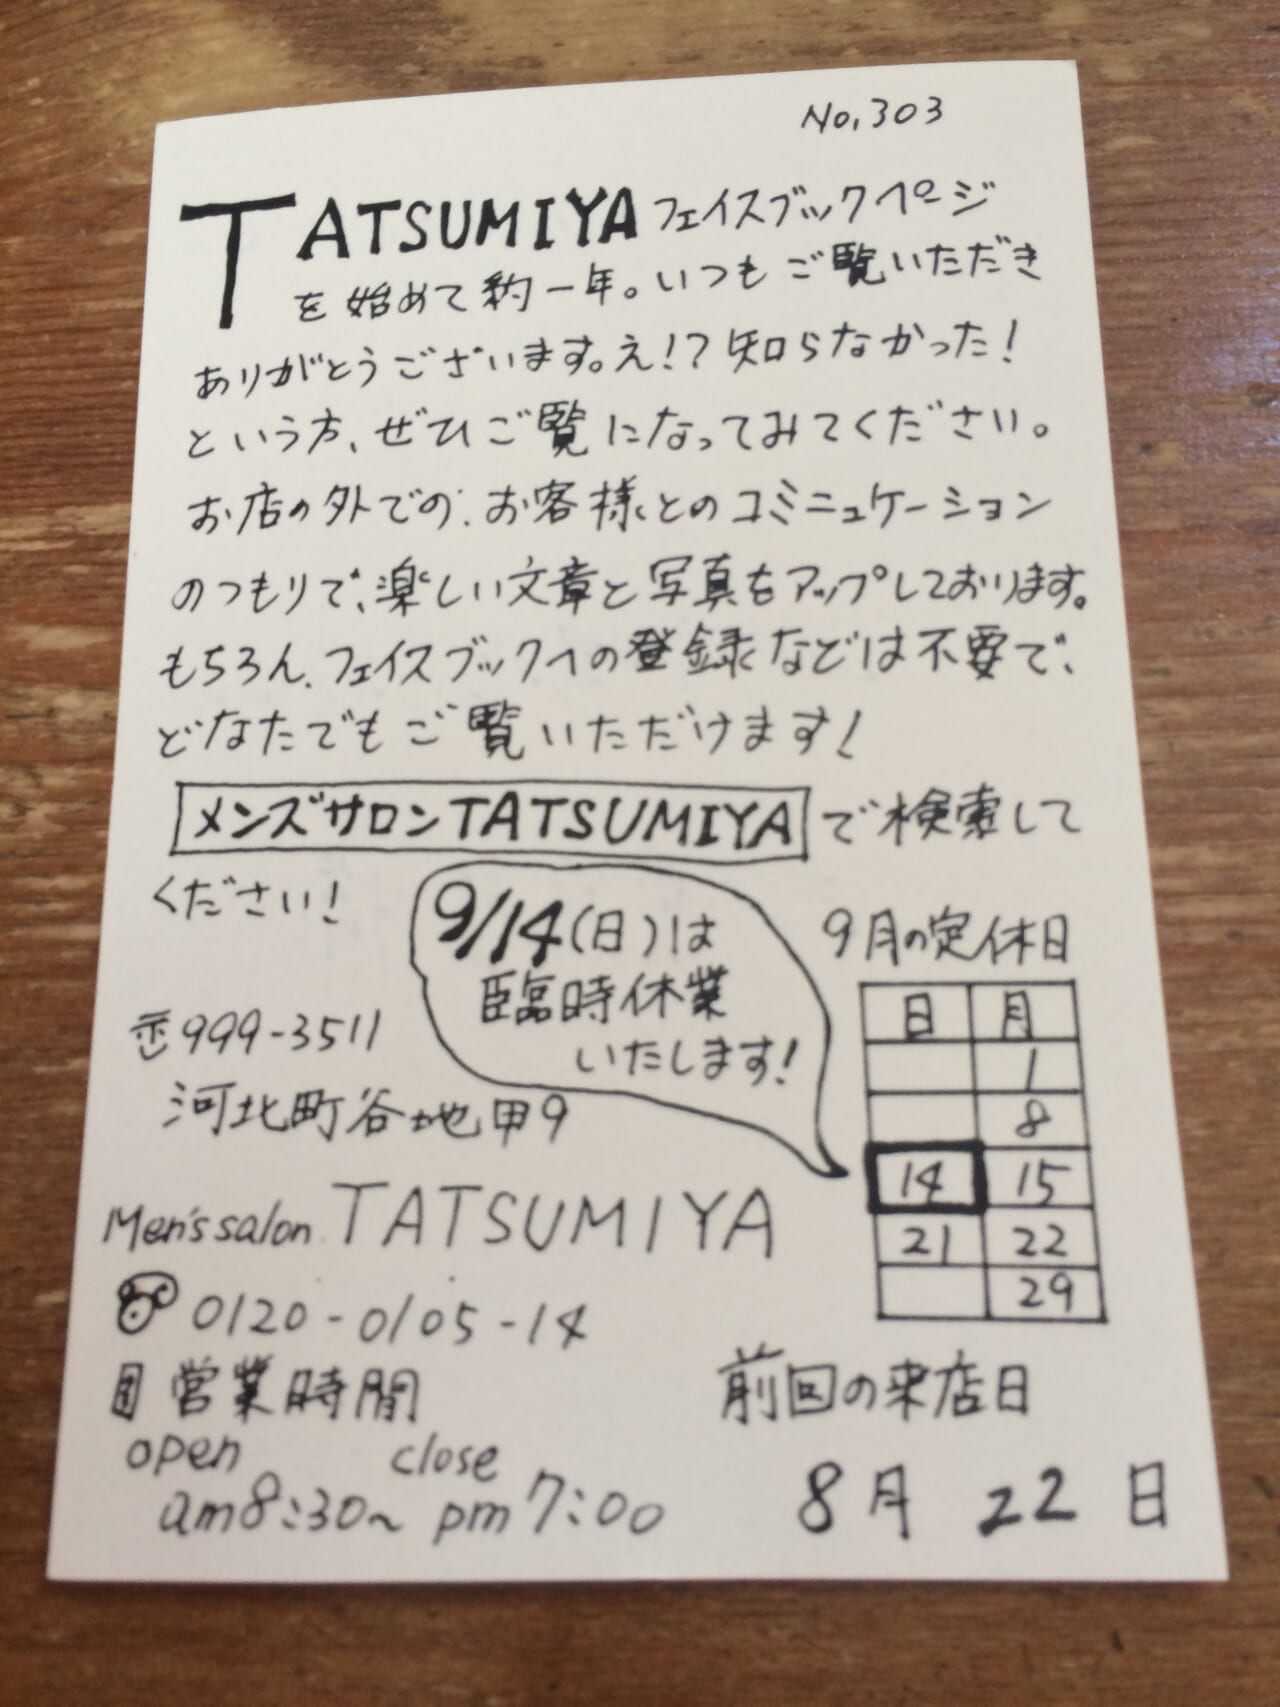 No.303
TATSUMIYAフェイスブックページ
を始めて約一年。いつもご覧いただき
ありがとうございます。え!?知らなかった!
という方、ぜひご覧になってみてください。
お店の外での、お客様とのコミニュケーション
のつもりで、楽しい文章と写真をアップしております。
もちろん、フェイスブックへの登録などは不要で、
どなたでもご覧いただけます!
メンズサロンTATSUMIYAで検索して
ください!
9/14(日)は
臨時休業
いたします!
9月の定休日
日 月
1
8
14 15
21 22
29
〒999-3511
河北町谷地甲9
Men's salon TATSUMIYA
0120-0105-14
営業時間
open close
am8:30~pm7:00
前回の来店日
8月22日